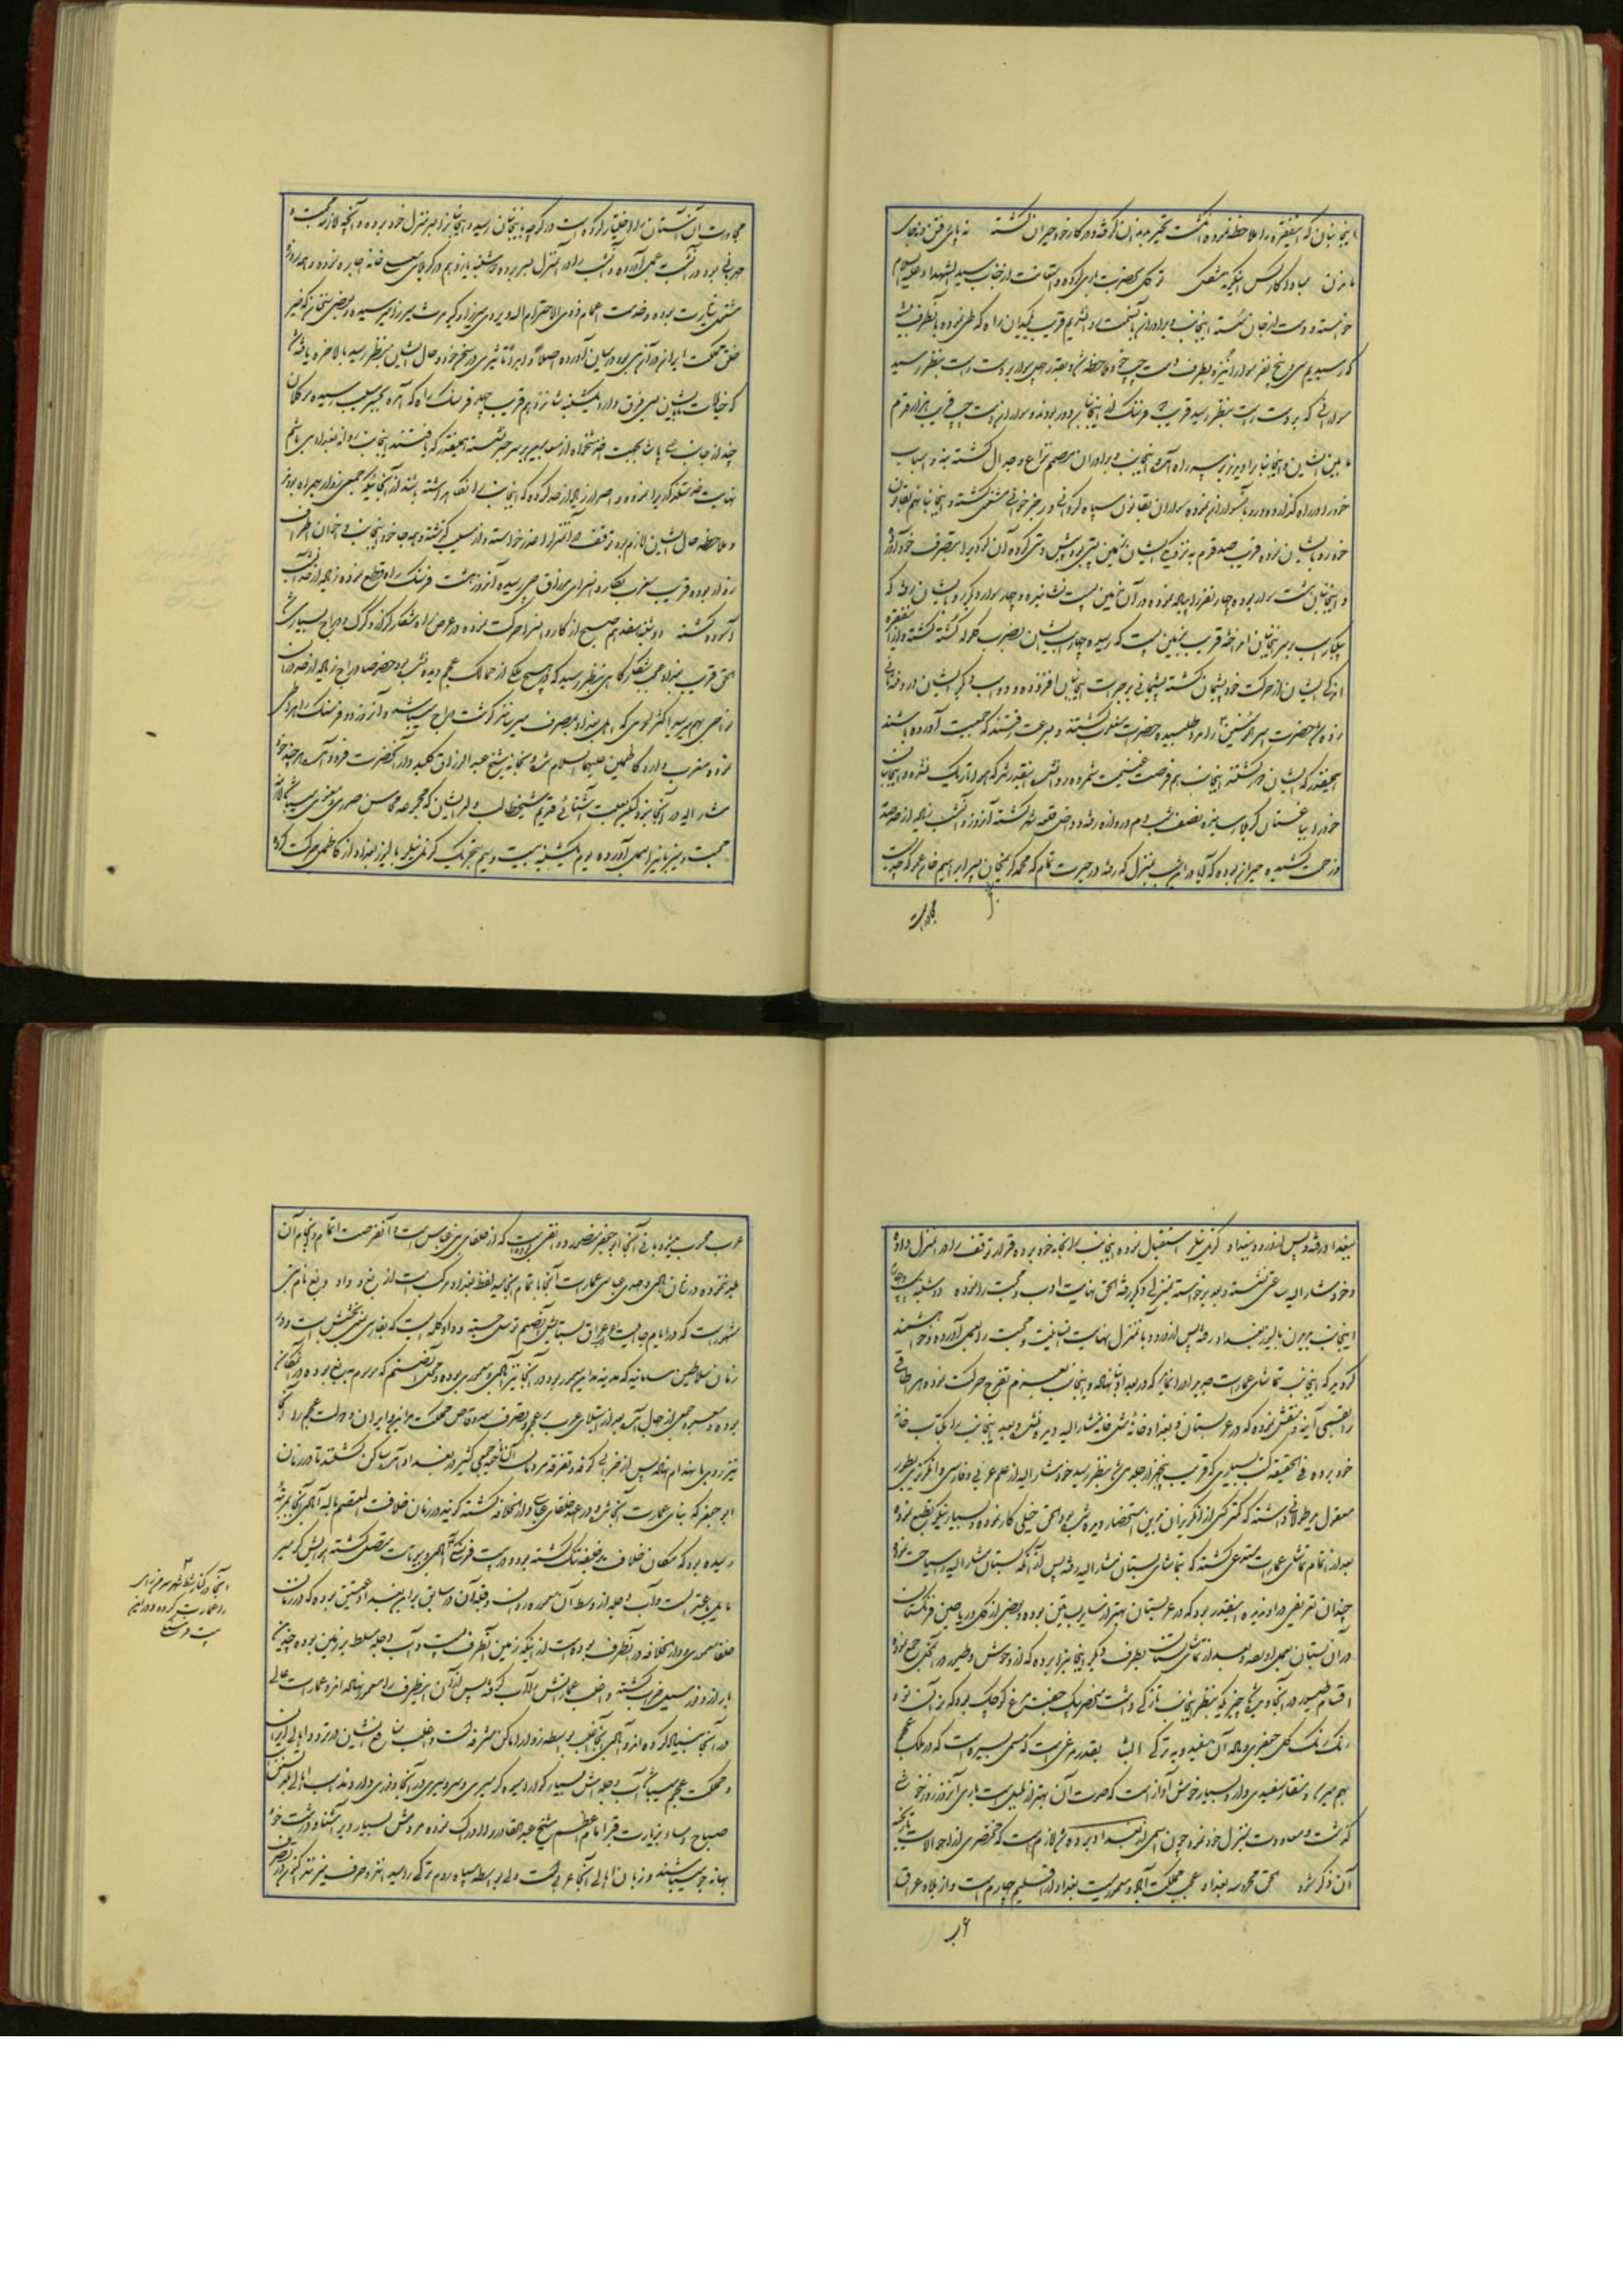 اینجانبان که اینفقره را ملاحظه نموده انگشت تحیر بدندان گرفته و در کار خود حیران گشته نه پای رفتن و نه جای
ماندن مباد کار کس اینگونه مشکل توکل بحضرت باری کرده و استعانت از جناب سیدالشهداء علیه السلام
خواسته و دست از جان شسته اینجانب و برادران بآنسمت روانه شدیم قریب بمیدان راه که طی نموده بآنطرف
که رسیدیم سی پنج نفر سوار از نیزه بطرف دست چپ ملاحظه شد و بقدر چهل سوار بر دست راست بنظر رسید
سوارانی که بر دست راست بنظر رسید قریب فرسنگ از اینجانبان دور بودند و سواران دست چپ قریب هزار قدم
مابین ایشان و اینجانبان و برادران مصمم نزاع و جدال گشته بنه و اسباب
خود را در راه گذارده و رو بآنسواران نموده سواران بقانون سپاه و رجز خوانی مشغول گشته و اینجانبان هم بقانون
خود رو بایشان نموده قریب صد قدم به نزدیکی ایشان زمین پستی بود پیش دستی کرده آن گودی را بتصرف خود آورده
و اینجانبان هشت سوار بوده چهار نفر را پیاده نموده در آن زمین پست نشانیده و چهار سوار دیگر رو بایشان رفته که
یکبار اسب بر سر اینجانبان انداخته قریب بزمین پست که رسیده چهار اسب ایشان بضرب گلوله کشته گشته و از اینفقره
ایشان از حرکت خود پشیمان گشته پشیمانی بر جرأت اینجانبان افزوده و دو اسب دیگر ایشان در وقت
زده شد حضرت امیرالمؤمنین را مدد طلبیده و بسرعت رفتند که جمعیت آورده باشند
همینقدر که ایشان برگشتند اینجانب هم فرصت غنیمت شمرده روانه شده بقدری که هوا تاریک شده و اینجانبان
خود را بباغستان کربلا رسانیده نصف شب دم دروازه رفته و داخل قلعه شهر گشته آنروز و آنشب زیاده از حد صدمه
و زحمت کشیده حیران بوده که آیا در این شب بمنزل که رفته در حیرت تمام که محمد کریمخان پسر ابراهیم خان عمو که چندیست
مجاورت
مجاورت آن آستان را اختیار کرده است در کوچه باینجانبان رسیده و اینجانبان را بسر منزل خود برده و آنچه لازمه محبت و
مهربانی بود در آنشب بعمل آورده و آنشب را در آنمنزل بسر برده و شنبه پانزدهم در کربلای معلی خانه اجاره نموده و همه روزه
مشغول زیارت بوده و خدمت اعمام ذوی الاحترام الله ویردی میرزا و کیومرث میرزا نیز رسیده و بعضی سخنان که خیر
خلق مملکت ایران در آن می بود در میان آورده اصلا و ابدا تأثیری در سخن خود و حال ایشان بنظر نرسید بالاخره یافته شد
که خیالات ایشان بی فروق دارد یکشنبه شانزدهم قریب چهار فرسنگ راه که آمده بجسر مسیب رسیده مردمان
چند از جانب پاشا بجهت اخذ تنخواه از معابرین بر سر جسر نشسته همینقدر که یافتند اینجانب روانه بغداد می باشم
نهایت خدمتگذاری را نموده و اصرار زیاده از حد کرده که اینجانب را نگاه داشته باشند از آنجائیکه جمعی زوار همراه بودند
و ملاحظه حال ایشان لازم بود توقف در آنمنزل را عذر خواسته و از مسیب گذشته و همه جا خود اینجانب و اخوان اطراف
زوار بوده قریب بغروب بکاروانسرای مرزاقچی رسیده آنروز هشت فرسنگ راه قطع نموده زیاده از حد
آسوده گشته دوشنبه هفدهم صبح از کاروانسرا حرکت نموده در عرض راه شکار کرکی و کبک و دراج بسیاری شد
الحق قریب ببغداد عجب شکارگاهی بنظر رسید که در هیچ یک از ممالک عجم دیده نشد بود خصوصا دراج زیاده از حد در آن
نواحی بهم میرسد اکثر لحومی که اهل بغداد بمصرف میرسانند گوشت دراج میباشد و آنروز دو فرسنگ راه را طی
نموده و بمغرب وارد کاظمین علیهما السلام شده و بخانه شیخ عبدالرزاق کلیددار آنحضرت فرود آمد هرچند خود
مشار الیه در آنجا نبود لیکن بعلت آشنائی قدیم شیخ طالب ولد ایشان که مجموعه محاسن صوری و معنوی میباشد لازمه
محبت و میزبانی را بعمل آورده یوم یکشنبه بیست و سیم بتحریک کرنل تیلر بالیوز بغداد از کاظمین حرکت کرده
ببغداد رفته و پس از ورود ببغداد کرنل تیلر استقبال نموده اینجانب را بخانه خود برده و قرار توقف را در آنمنزل داده
و خود مشار الیه ساعتی نشسته و بعد برخواسته بمنزلی دیگر رفته الحق نهایت ادب و محبت را نموده دوشنبه بیست و چهارم
اینجانب بدیدن بالیوز بغداد رفته پس از ورود بآنمنزل نهایت انسانیت و محبت را بعمل آورده و خواهشمند
گردید که اینجانب تماشای عمارات جدید او را نماید که در بغداد بنا نهاده و اینجانب بعزم تفرج حرکت نموده هر اطاقی
را بقسمی آیینه و نقش نموده که در عربستان و بغداد خانه مثل خانه مشار الیه دیده نشده و بعد اینجانب را بکتاب خانه
خود برده فی الحقیقه کتب بسیاری که قریب پنجهزار جلد می شد بنظر رسید خود مشار الیه از علوم عربی و فارسی و انگریزی بطور
معقول ید طولانی داشته که کمتر کسی از انگریزان بدین استحضار دیده شده بود الحق خیلی کار نموده و بسیار نیکو بطبع نموده
بعد از اتمام تماشای عمارت مستدعی گشته که بتماشای بستان مشار الیه رفته پس از آنکه بستان مشار الیه را سیاحت نموده
چندان تعریفی در او ندیده اینقدر بود که در عربستان بهتر از سایر بساتین بوده و بعضی از گل و ریاحین فرنگستان
در آن بستان بعمل آورده و بعد از تماشای بستان بطرف دیگر اینجانب را برده که از وحوش و طیور در آنمحل جمع نموده
اقسام طیور در آنجا دیده شد چیزیکه بنظر اینجانب تازگی داشت منحصر بیک جفت مرغ کوچک بوده که بدن آن تو در
رنگ برنگ گل جعفری و باله آن سفید و به ترکی آلیشا بقدر مرغی است که مسمی بسیره است که در ملک عجم
بهم میرسد و منقار سفیدی دارد و بسیار خوش آواز است که صوت آن بهتر از بلبل است باری آنروز روز خوشی
گذشت و معاودت بمنزل خود نمود چون اسمی از بغداد برده شد لازم است که مختصری از احوالات تاریخیه
آن ذکر شود الحق محروسه بغداد عجب مملکت آباد و معموریست بغداد از اقلیم چهارم است و از بلاد عراق
عرب محسوب میشود بانی آنجا ابوجعفر منصور دوانقی بوده است که از خلفای بنی عباس است و آنقدر فرصت اتمام و انجام آن
طلبه ننموده در زمان مهدی عباسی عمارات آنجا باتمام انجامید لفظ بغداد مرکب است از بغ و داد و بغ نام بتی
مشهور است که در ایام جاهلیت اعراب عراق بستایش آنصنم توسل جسته و داد کلمه ایست که بفارسی بمعنی بخشش است و در
زمان سلاطین ساسانیه که مدینه مداین معمور بود در آنجا نیز آبادی و معموری بوده و محل آنصنم که موسوم به بغ بوده در آنمکان
بوده و معبد جمعی از جهال آنعهد از استیلای عرب بر عجم و تصرف سعد وقاص مملکت مداین و ایران و دولت عجم را آنجا
نیز روی بانهدام نهاده پس از خرابی کوفه و تفرقه مردمان آن ناحیه جمعی کثیر در بغداد آمده ساکن گشتند تا در زمان
ابوجعفر که بنای عمارت آنجا شد و در عهد خلفای عباسیه دارالخلافه گشته که نیز در زمان خلافت المعتصم بالله آبادی آنجا بمرتبه
رسیده بود که مکان خلاف بر خلیفه تنگ گشته بود دویست فرسنگ آبادی و بیوتات متصل گشته هوایش گرمسیر
مایل باعتدال است و آب دجله از وسط آن معموره روان و قلعه آن در سابق بر این بغداد عتیق بوده که در زمان
خلفا معموره و دارالخلافه در آنطرف بوده است از اینکه زمین آنطرف پست و آب دجله مسلط بر زمین بوده چندین
بار از وفور سیل خراب گشته و اغلب عماراتش را آب گرفته پس از آن اینطرف را معمور نهاده اند و عمارات عالی
در آنجا بنیاد کرده اند و آبادی آنجا اغلب بواسطه زوار اماکن مشرفه است و اغلب متاع هندوستان در تردد و اهالی ایران
و مملکت عجم میباشد آب دجله اش بسیار گوارا و میوه گرمسیری و سردسیری در آنجا وفوری دارد و مذهب اهالی بلد تسنن
صباح و مساء بزیارت قبر امام اعظم و شیخ عبدالقادر را ادراک نموده مردمش بسیار دیر آشنا و درشت خو و
بهانه جو میباشند و زبان اهالی آنجا عربیست ولی بواسطه سپاه روم ترکی رومیه نیز حرف میزنند اکنون در تصرف
آنجا در کنار شط شهر سر من رای
را عمارت کرده و در این
بیت